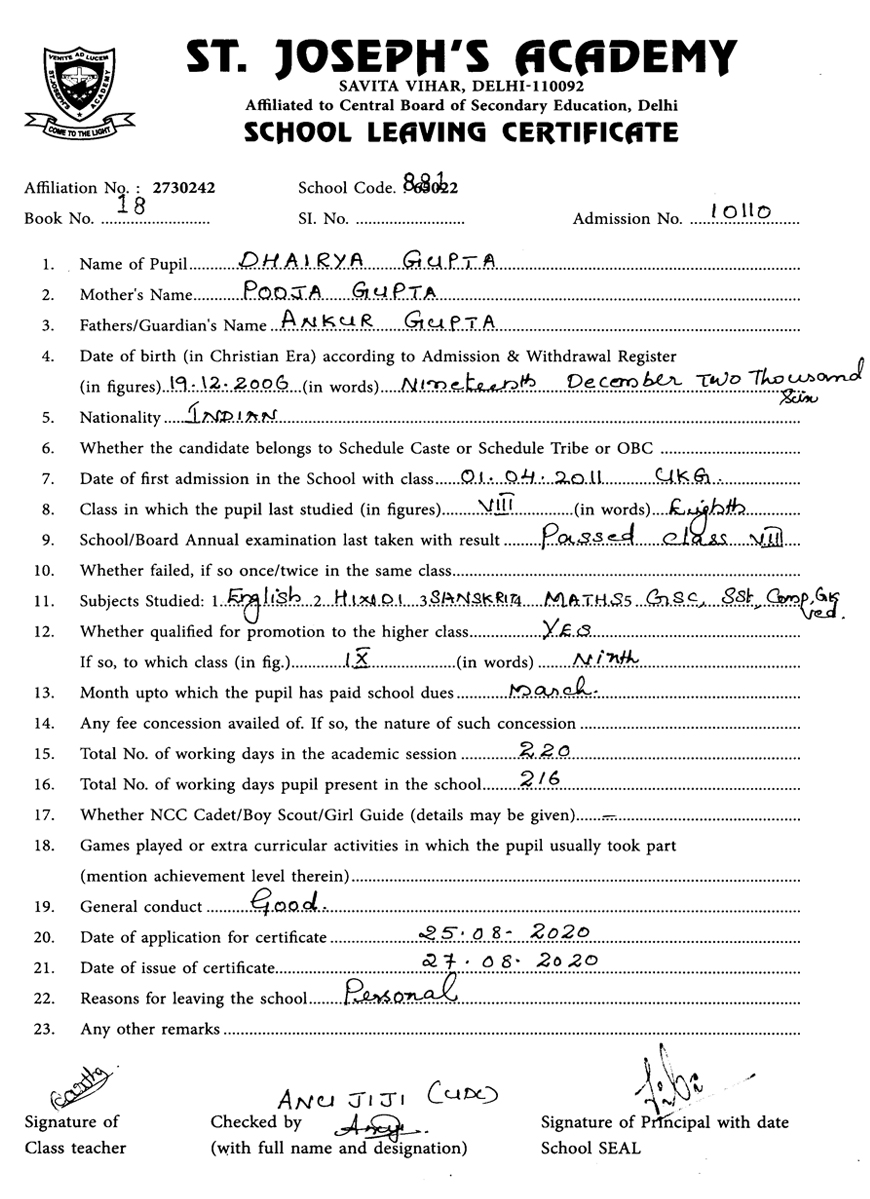 VENITE AD LUCEM
ST. JOSEPH'S ACADEMY
COME TO THE LIGHT
ST. JOSEPH'S ACADEMY
SAVITA VIHAR, DELHI-110092
Affiliated to Central Board of Secondary Education, Delhi
SCHOOL LEAVING CERTIFICATE
Affiliation No. : 2730242 School Code. 881
Book No. 18 SI. No. Admission No. 10110
1. Name of Pupil DHAIRYA GUPTA
2. Mother's Name POOJA GUPTA
3. Fathers/Guardian's Name ANKUR GUPTA
4. Date of birth (in Christian Era) according to Admission & Withdrawal Register
(in figures) 19.12.2006 (in words) Nineteenth December Two Thousand
5. Nationality INDIAN
6. Whether the candidate belongs to Schedule Caste or Schedule Tribe or OBC
7. Date of first admission in the School with class 01.04.2011 UKG.
8. Class in which the pupil last studied (in figures) VIII (in words) Eighth
9. School/Board Annual examination last taken with result Passed class VIII
10. Whether failed, if so once/twice in the same class
11. Subjects Studied: 1. English 2 HINDI 3 SANSKRIT 4 MATHS 5 G.SC, SSt, Comp, GK
V.ed.
12. Whether qualified for promotion to the higher class YES
If so, to which class (in fig.) IX (in words) Ninth
13. Month upto which the pupil has paid school dues March.
14. Any fee concession availed of. If so, the nature of such concession
15. Total No. of working days in the academic session 220
16. Total No. of working days pupil present in the school 216
17. Whether NCC Cadet/Boy Scout/Girl Guide (details may be given) —
18. Games played or extra curricular activities in which the pupil usually took part
(mention achievement level therein)
19. General conduct Good.
20. Date of application for certificate 25.08-2020
21. Date of issue of certificate 27.08.2020
22. Reasons for leaving the school Personal
23. Any other remarks
ANU JIJI (UDC)
Signature of Checked by Signature of Principal with date
Class teacher (with full name and designation) School SEAL